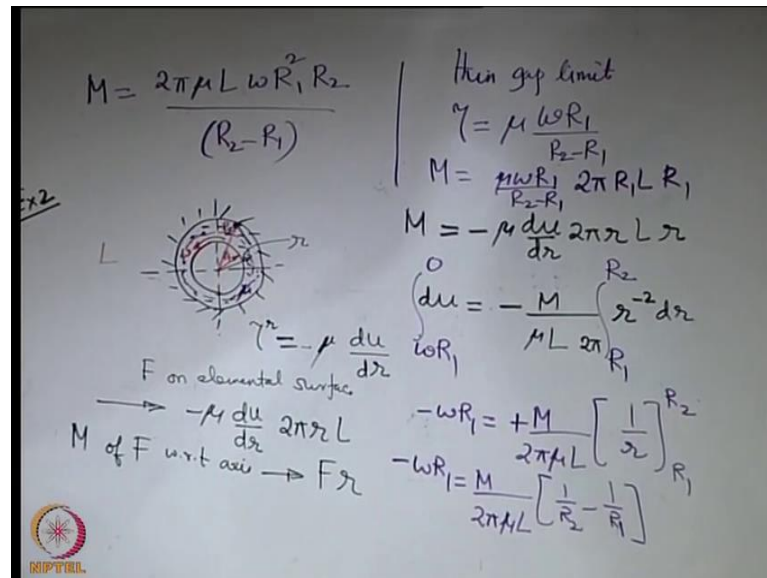 M = 2πμL ωR₁² R₂ / (R₂-R₁)
Ex2
L
r
μ
τ = -μ du/dr
F on elemental surface
→ -μ du/dr 2πrL
M of F w.r.t axis → Fr
thin gap limit
τ = μ ωR₁ / R₂-R₁
M = μωR₁ / R₂-R₁ 2πR₁L R₁
M = -μ du/dr 2πrL r
∫_{ωR₁}^{0} du = - M / μL 2π ∫_{R₁}^{R₂} r⁻² dr
-ωR₁ = + M / 2πμL [1/r]_{R₁}^{R₂}
-ωR₁ = M / 2πμL [1/R₂ - 1/R₁]
NPTEL